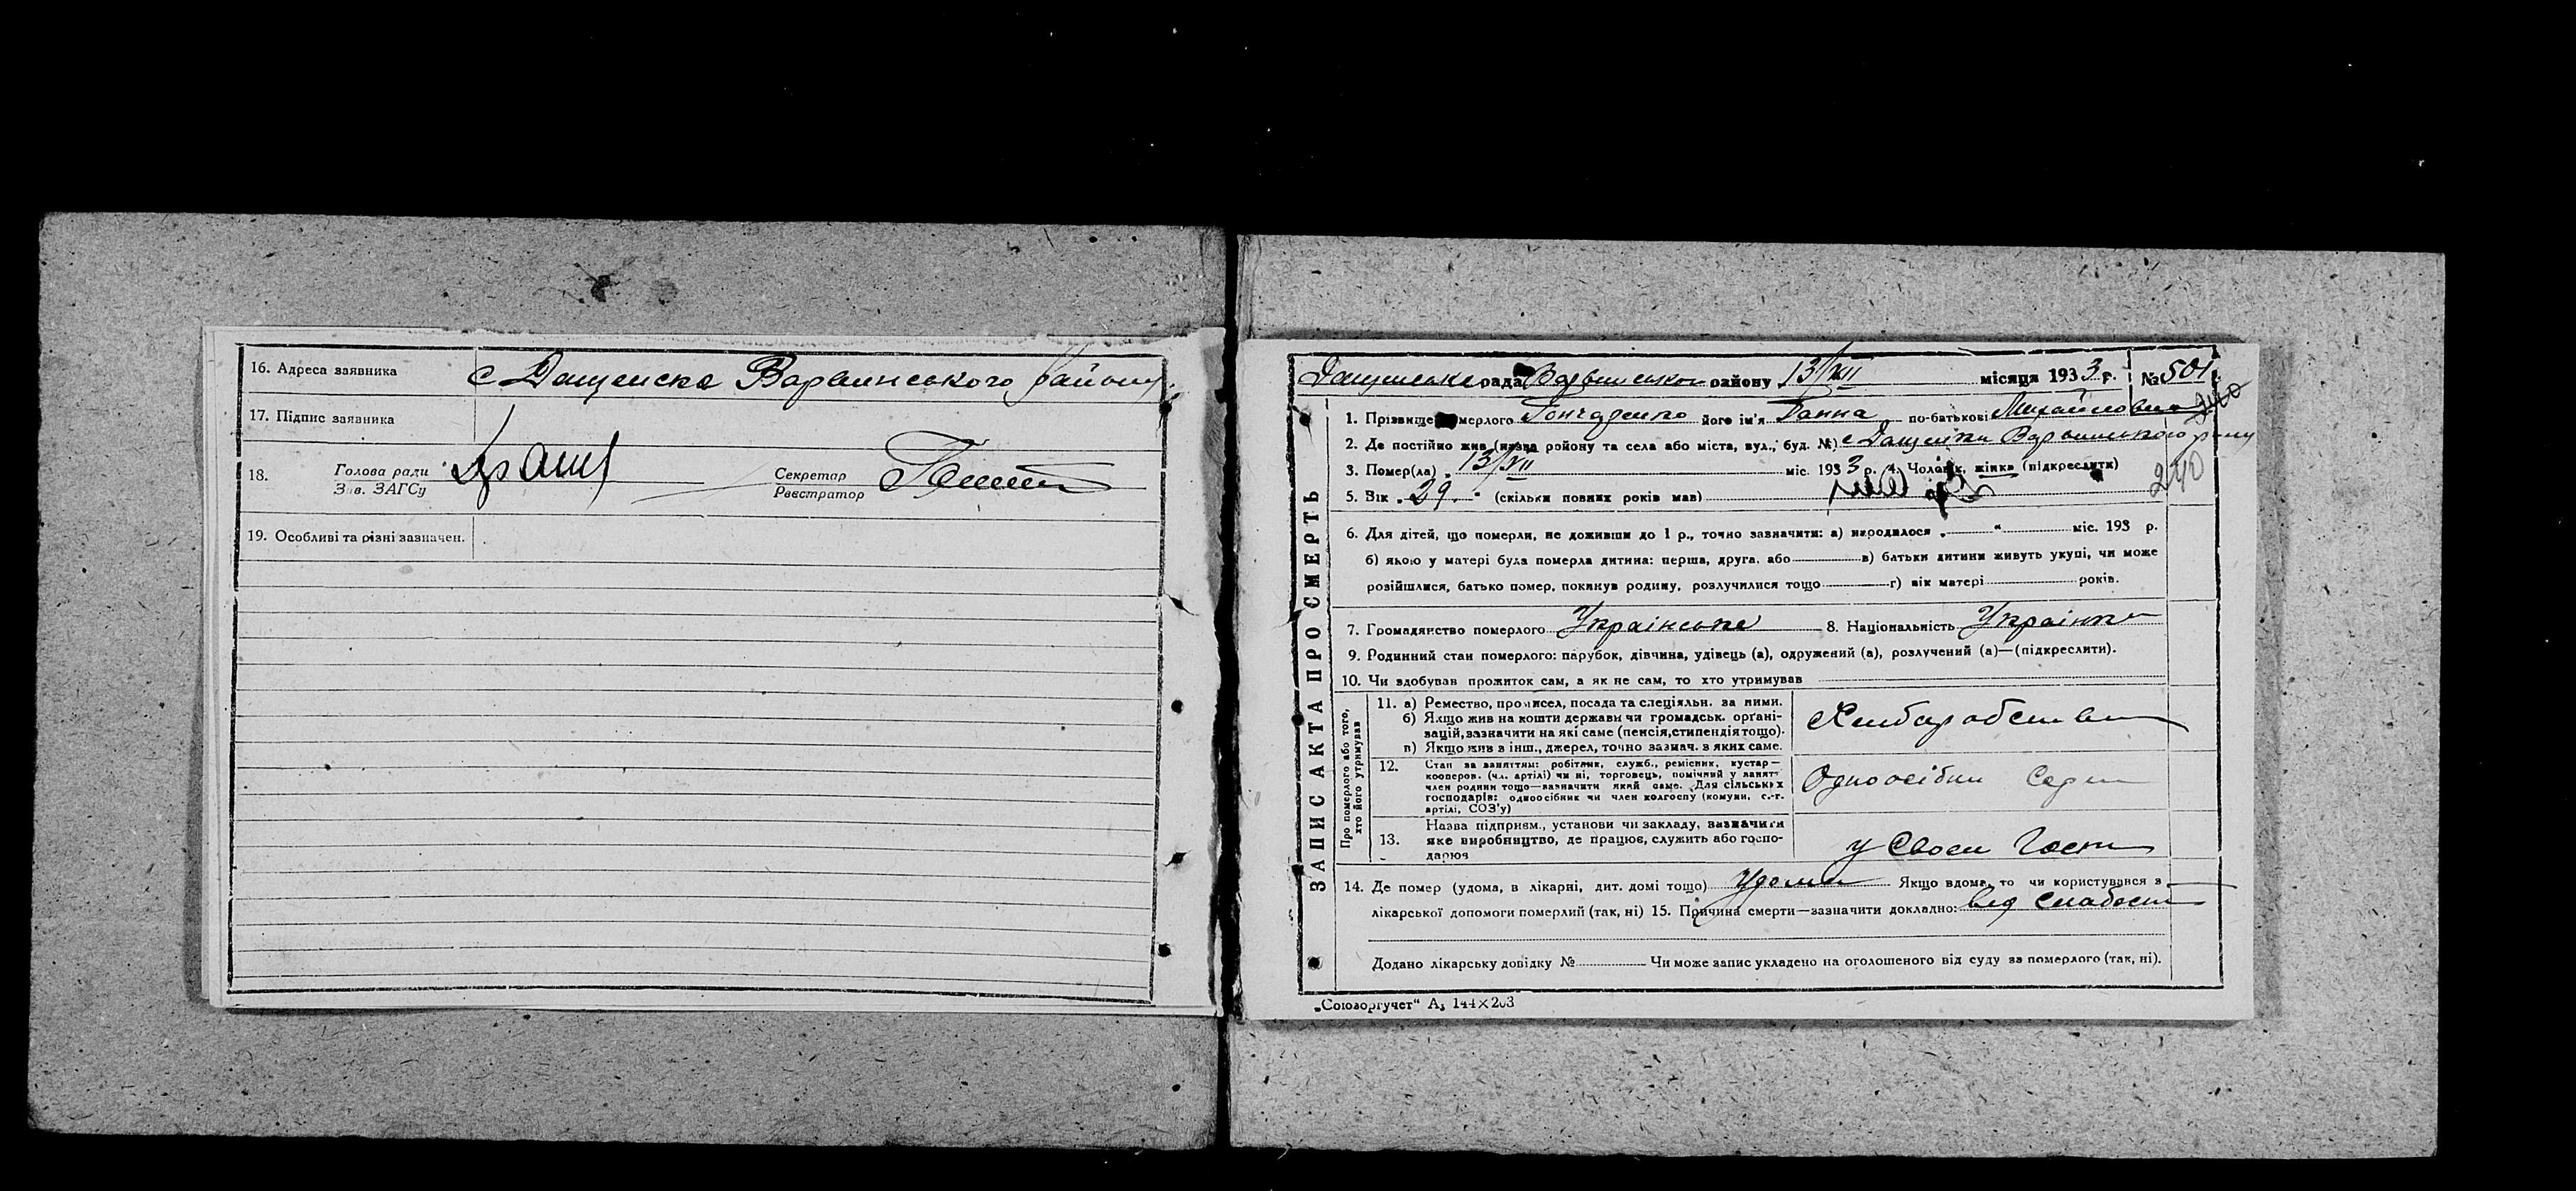 16. Адреса заявника с Дащенска Варвинського району
17. Підпис заявника
18. Голова ради
Зав. ЗАГСу
Секретар
Реєстратор
19. Особливі та різні зазначен.
ЗАПИС АКТА ПРО СМЕРТЬ
Дащенське рада Варвинського району 13/XII місяця 1933 р. № 501
1. Прізвище померлого Гончаренко його ім'я Ганна по-батькові Михайловна
240
2. Де постійно жив (назва району та села або міста, вул., буд. №) с Дащенки Варвинського району
3. Помер(ла) „ 13/XII міс. 1933 р. 4. Чоловік, жінка (підкреслити)
240
5. Вік 29. (скільки повних років мав)
6. Для дітей, що померли, не доживши до 1 р., точно зазначити: а) народилося „ “ міс. 193 р.
б) якою у матері була померла дитина: перша, друга, або в) батьки дитини живуть укупі, чи може
розійшлися, батько помер, покинув родину, розлучилися тощо г) вік матері років.
7. Громадянство померлого Українське 8. Національність Українка
9. Родинний стан померлого: парубок, дівчина, удівець (а), одружений (а), розлучений (а)—(підкреслити).
10. Чи здобував прожиток сам, а як не сам, то хто утримував
Про померлого або того,
хто його утримував
11. а) Ремество, промисел, посада та спеціяльн. за ними.
б) Якщо жив на кошти держави чи громадськ. органі-
зацій, зазначити на які саме (пенсія, стипендія тощо).
в) Якщо жив в інш., джерел, точно зазнач. з яких саме.
Хлиборобства
12. Стан за заняттям: робітник, служб., ремісник, кустар—
кооперов. (чл. артілі) чи ні, торговець, помічний у занят-
член родини тощо—зазначити який саме. Для сільських
господарів: одноосібник чи член колгоспу (комуни, с.-г.
артілі, СОЗ'у)
Одноосібни Сере
13. Назва підприєм., установи чи закладу, зазначити
яке виробництво, де працює, служить або госпо-
дарює
у Своем Госп
14. Де помер (удома, в лікарні, дит. домі тощо) удома Якщо вдома, то чи користувався з
лікарської допомоги померлий (так, ні) 15. Причина смерти—зазначити докладно: від слабости
Додано лікарську довідку № Чи може запис укладено на оголошеного від суду за померлого (так, ні).
„Союзоргучет“ А₅ 144×203